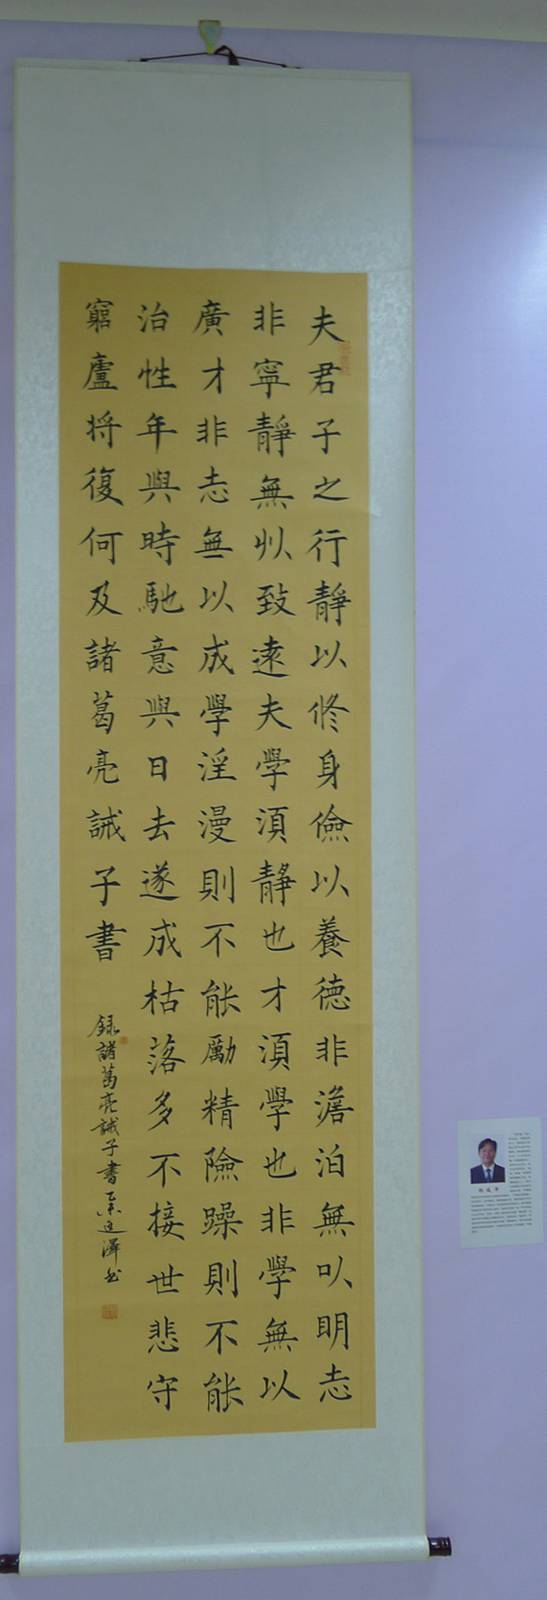 夫君子之行靜以修身儉以養德非澹泊無以明志
非寧靜無以致遠夫學須靜也才須學也非學無以
廣才非志無以成學淫漫則不能勵精險躁則不能
治性年與時馳意與日去遂成枯落多不接世悲守
窮廬將復何及諸葛亮誡子書
録諸葛亮誡子書